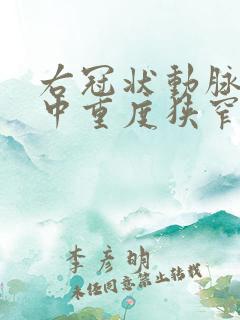 右冠状動脉
中重度狭窄
李彦明
未经同意禁止转载